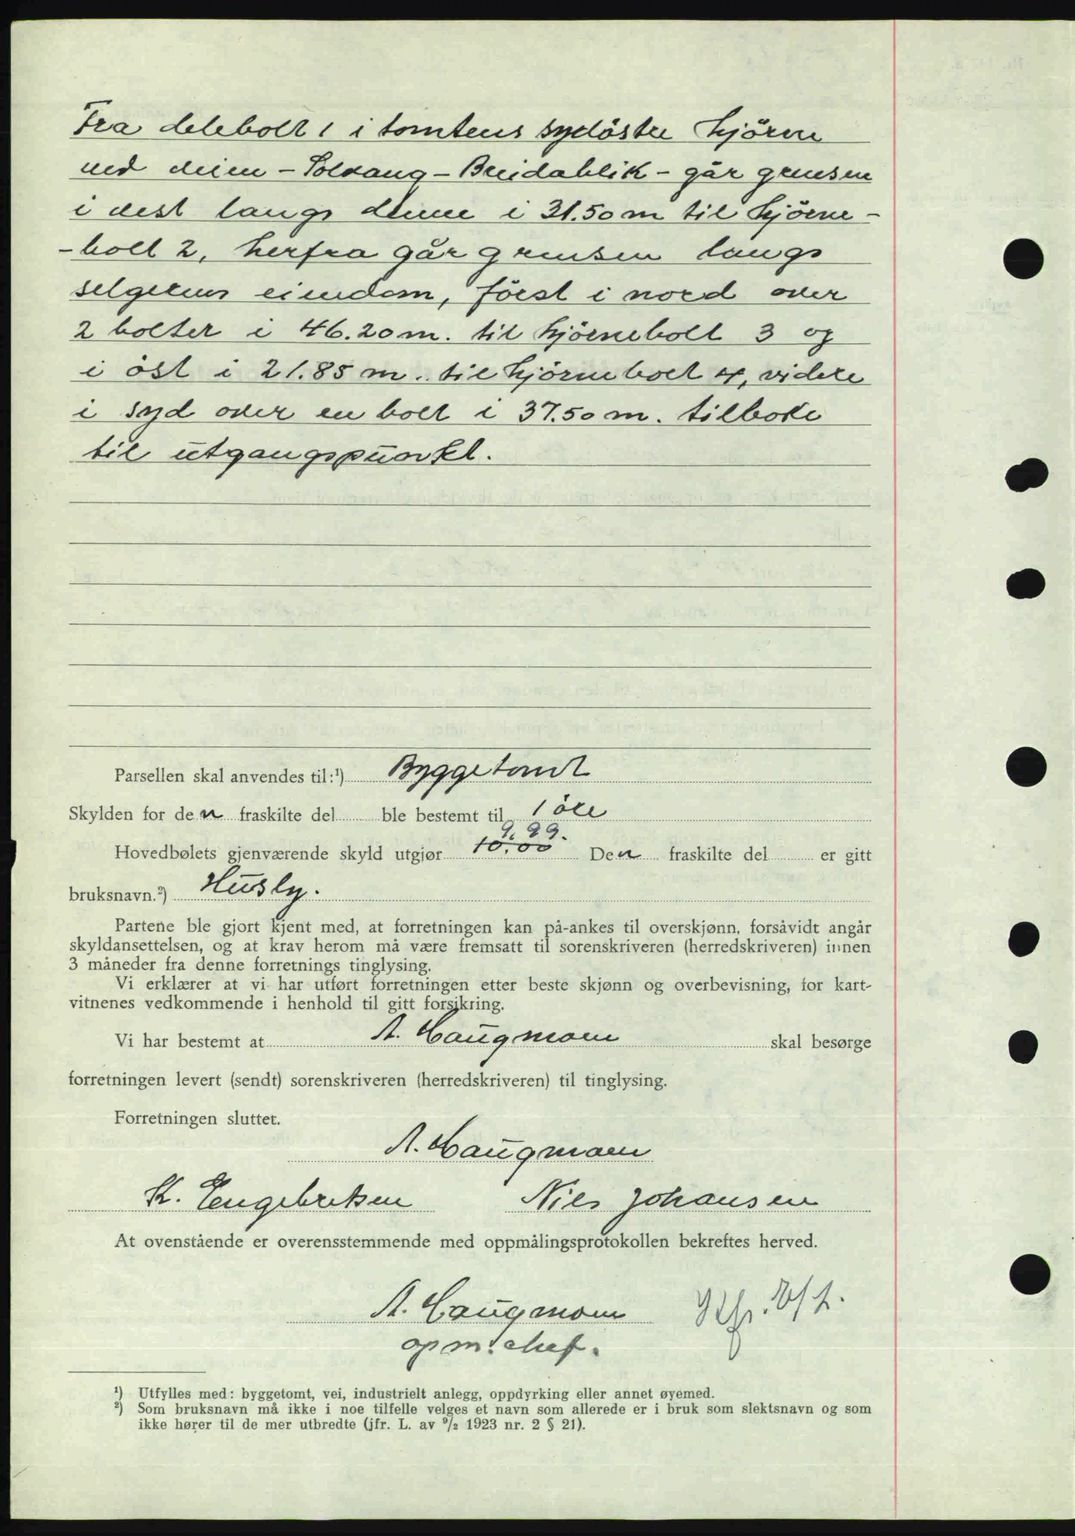 Fra delebolt 1 i tomtens sydöstre hjörne
ved veien - Solvang - Breidablik - går grensen
i vest langs denne i 31.50 m til hjörne-
-bolt 2, herfra går grensen langs
selgerens eiendom, först i nord over
2 bolter i 46.20 m. til hjörnebolt 3 og
i öst i 21.85 m. til hjörnebolt 4, videre
i syd over en bolt i 37.50 m. tilbake
til utgangspunkt.
Parsellen skal anvendes til:¹) Byggetomt
Skylden for den fraskilte del ble bestemt til 1 öre
9.99.
Hovedbølets gjenværende skyld utgjør 10.00 Den fraskilte del er gitt
bruksnavn.²) Husly.
Partene ble gjort kjent med, at forretningen kan på-ankes til overskjønn, forsåvidt angår
skyldansettelsen, og at krav herom må være fremsatt til sorenskriveren (herredskriveren) innen
3 måneder fra denne forretnings tinglysing.
Vi erklærer at vi har utført forretningen etter beste skjønn og overbevisning, for kart-
vitnenes vedkommende i henhold til gitt forsikring.
Vi har bestemt at A. Haugmoen skal besørge
forretningen levert (sendt) sorenskriveren (herredskriveren) til tinglysing.
Forretningen sluttet.
A. Haugmoen
K. Engebretsen Nils Johansen
At ovenstående er overensstemmende med oppmålingsprotokollen bekreftes herved.
A. Haugmoen
opm. chef.
¹) Utfylles med: byggetomt, vei, industrielt anlegg, oppdyrking eller annet øyemed.
²) Som bruksnavn må ikke i noe tilfelle velges et navn som allerede er i bruk som slektsnavn og som
ikke hører til de mer utbredte (jfr. L. av 9/2 1923 nr. 2 § 21).